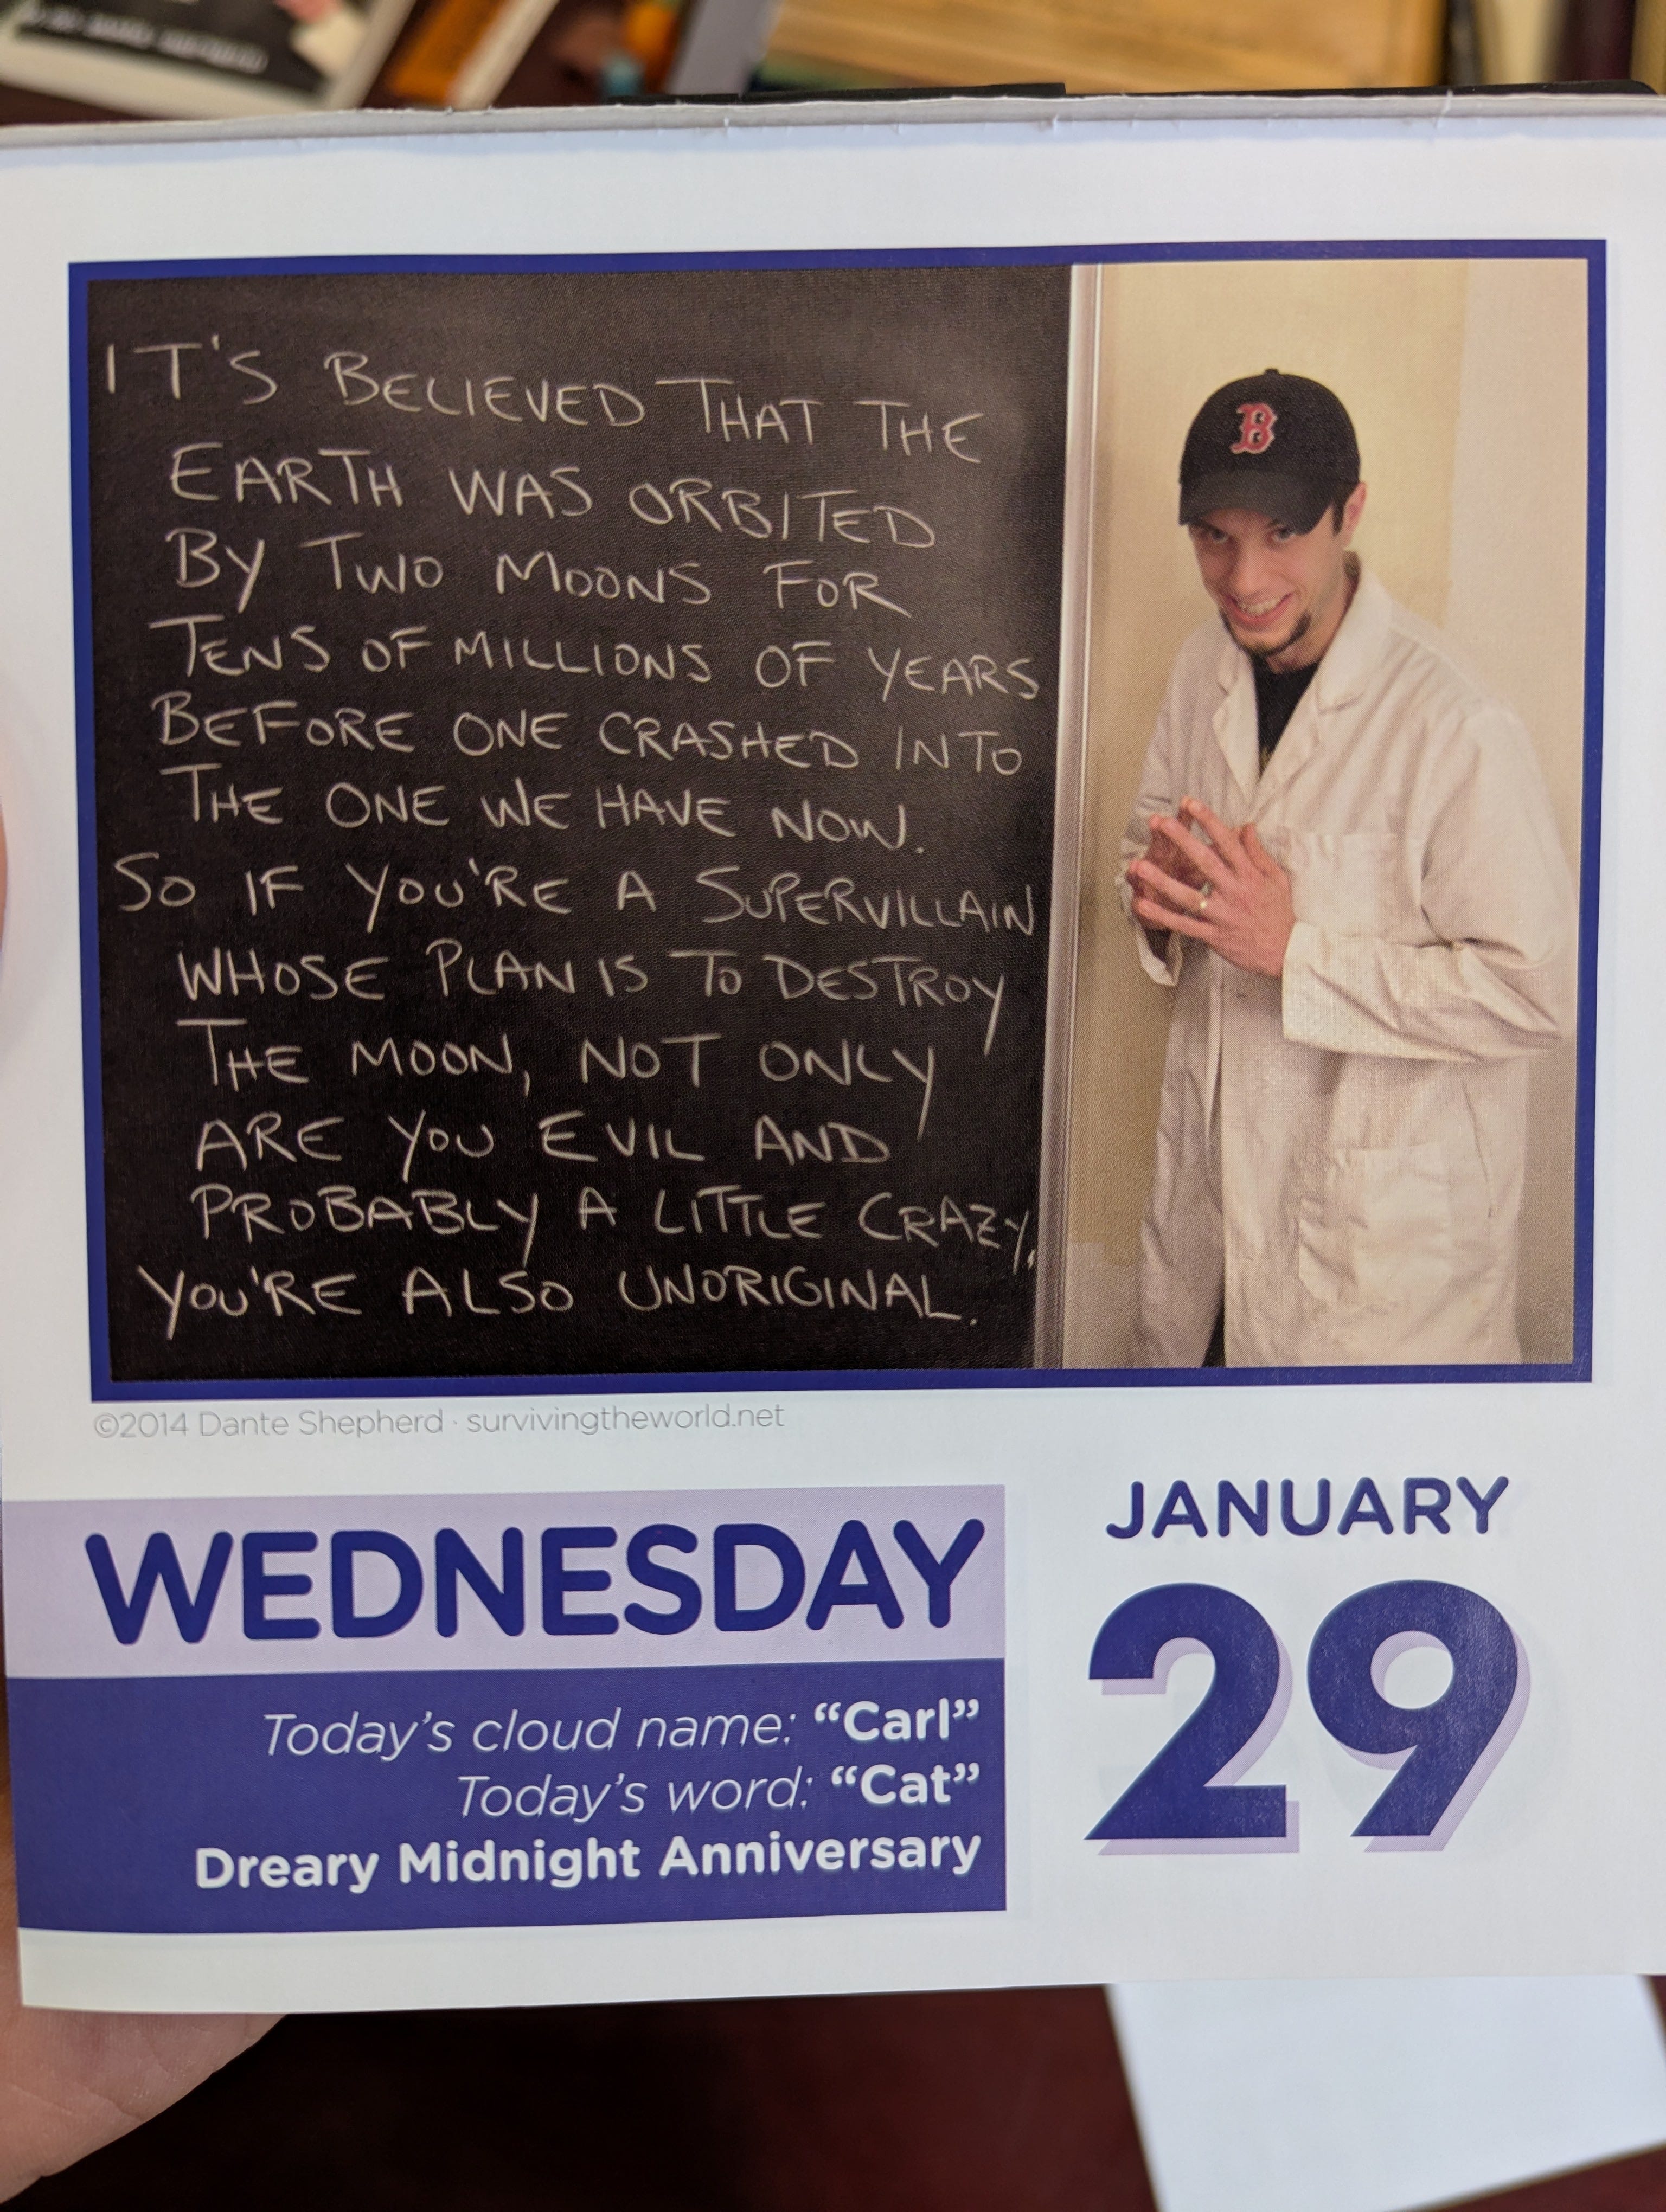 IT'S BELIEVED THAT THE
EARTH WAS ORBITED
BY TWO MOONS FOR
TENS OF MILLIONS OF YEARS
BEFORE ONE CRASHED INTO
THE ONE WE HAVE NOW.
SO IF YOU'RE A SUPERVILLAIN
WHOSE PLAN IS TO DESTROY
THE MOON, NOT ONLY
ARE YOU EVIL AND
PROBABLY A LITTLE CRAZY,
YOU'RE ALSO UNORIGINAL.
B
©2014 Dante Shepherd · survivingtheworld.net
WEDNESDAY
Today's cloud name: “Carl”
Today's word: “Cat”
Dreary Midnight Anniversary
JANUARY
29